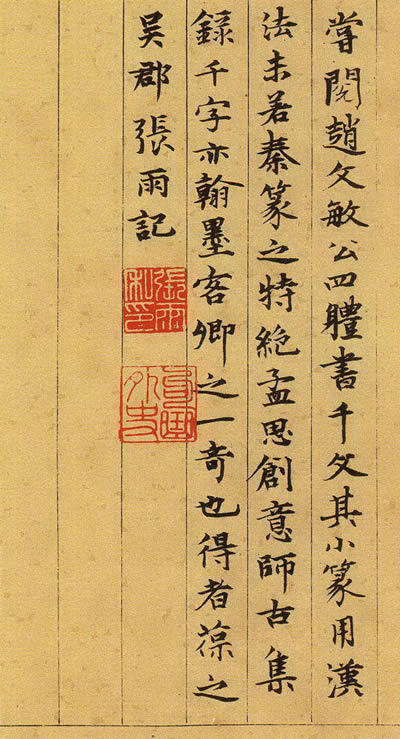 嘗閱趙文敏公四體書千文其小篆用漢
法未若秦篆之特絶孟思創意師古集
錄千字亦翰墨客卿之一奇也得者葆之
吳郡張雨記
張雨私印
句曲外史